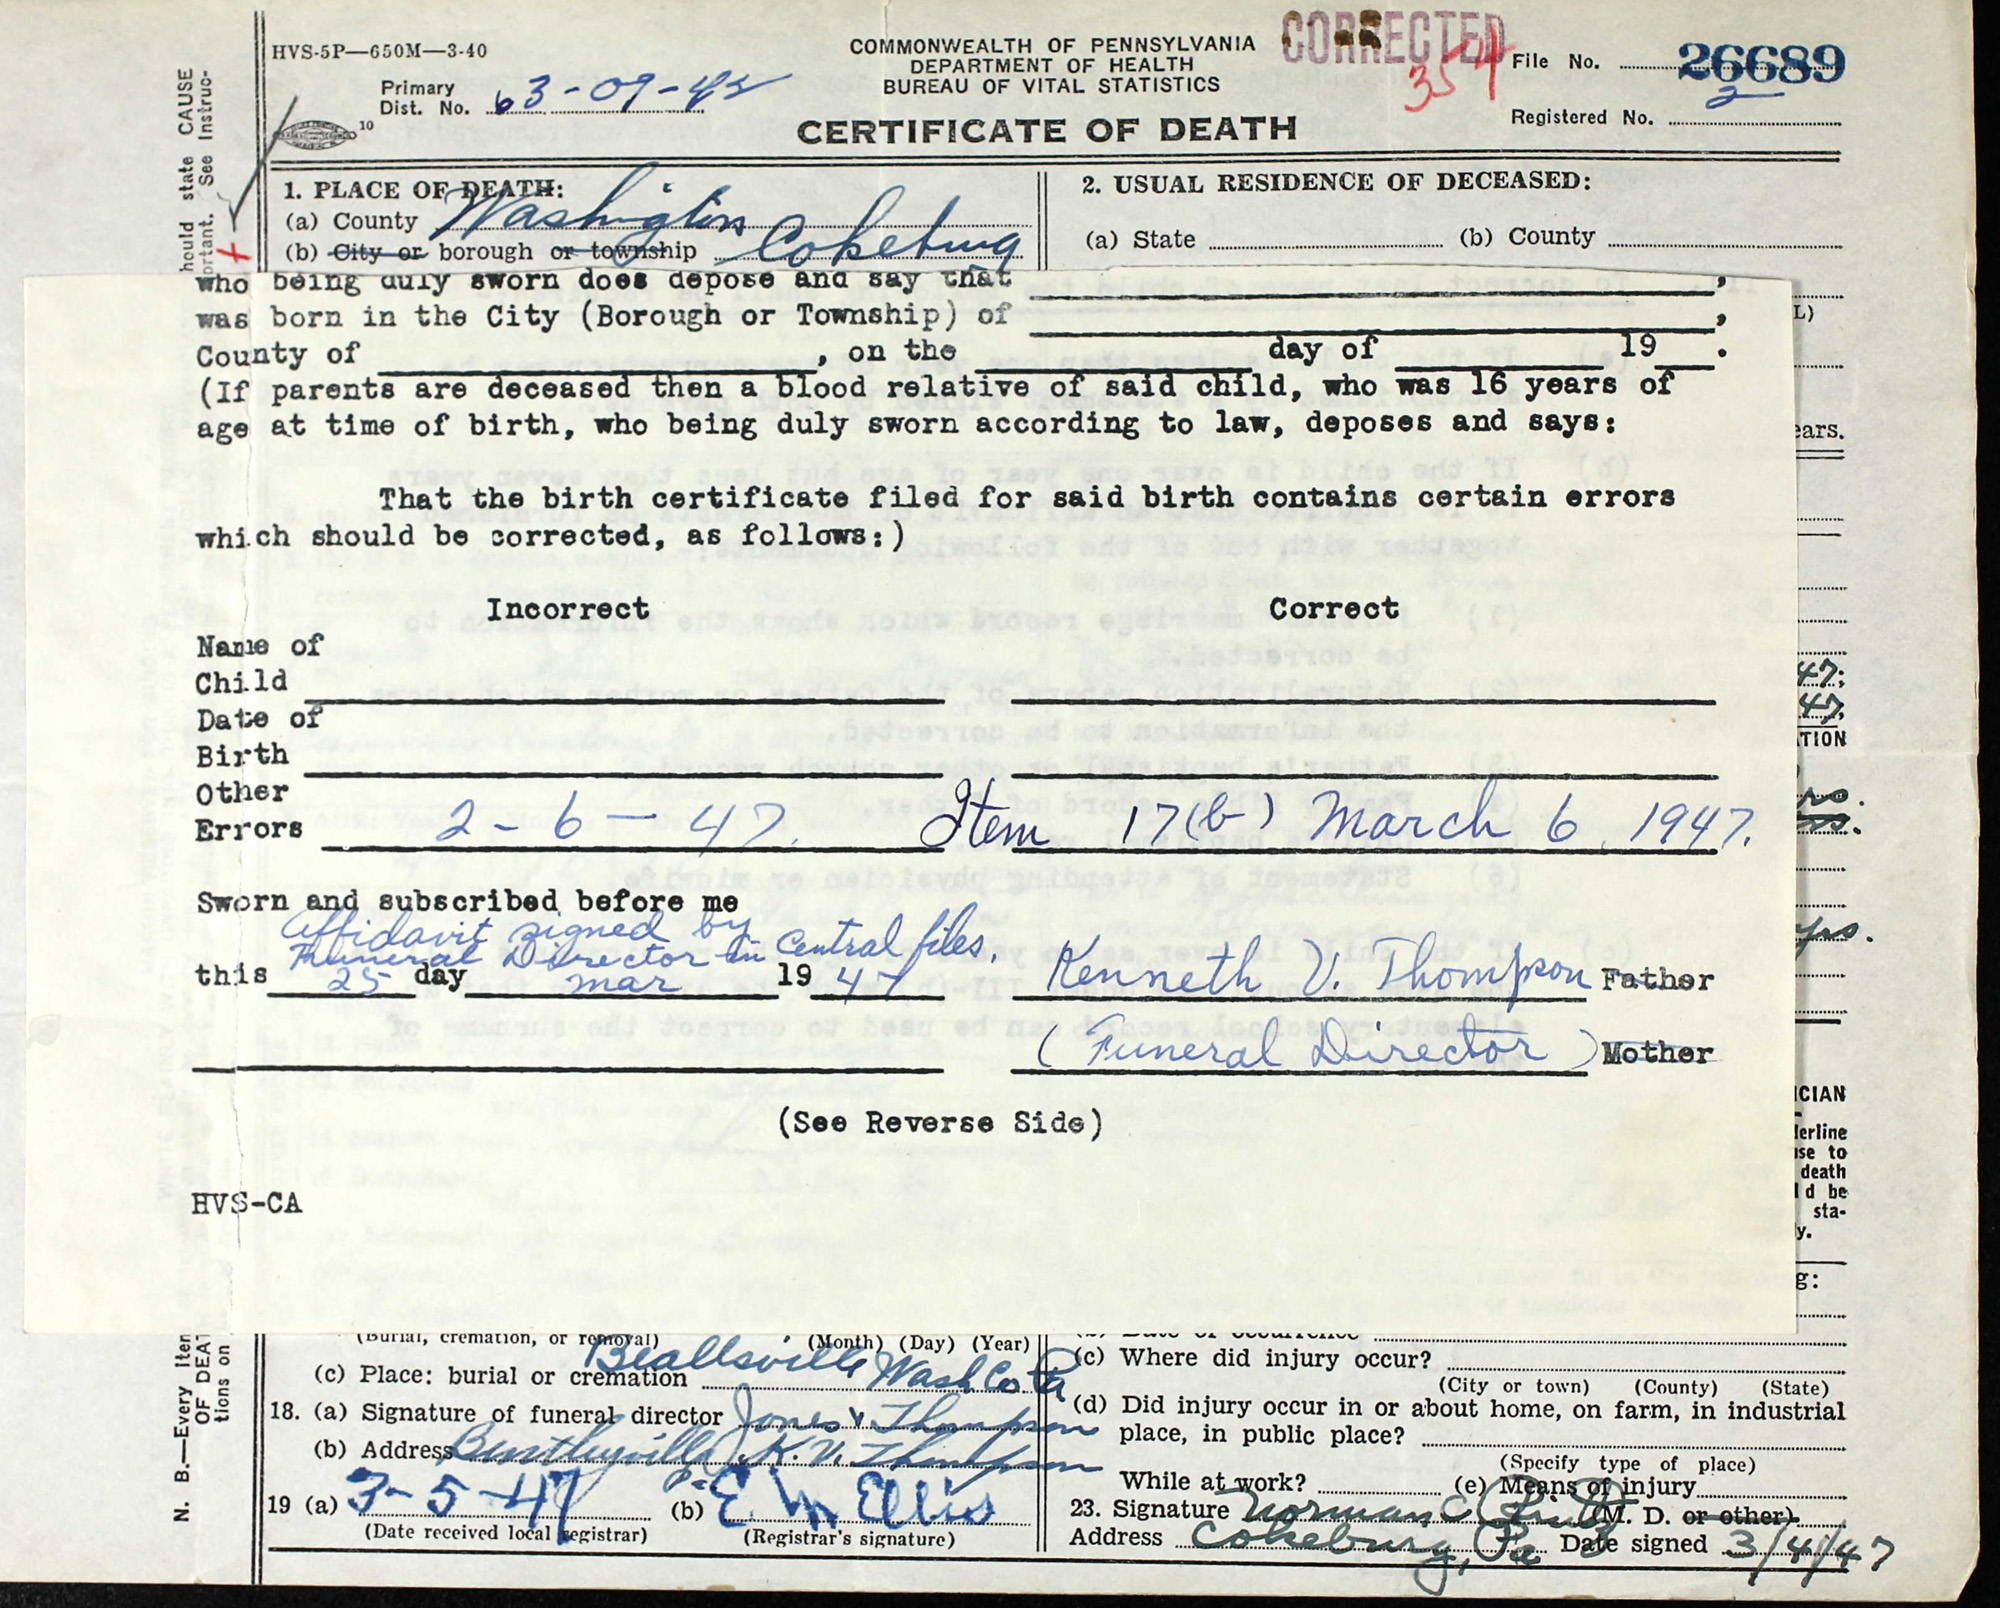 HVS-5P—650M—3-40
COMMONWEALTH OF PENNSYLVANIA
DEPARTMENT OF HEALTH
BUREAU OF VITAL STATISTICS
CERTIFICATE OF DEATH
CORRECTED
354
File No. 26689
Registered No. 2
Primary
Dist. No. 63-09-42
10
hould state CAUSE
ortant. See Instruc-
1. PLACE OF DEATH:
(a) County Washington
(b) City or borough or township Cokeburg
2. USUAL RESIDENCE OF DECEASED:
(a) State (b) County
who being duly sworn does depose and say that ,
was born in the City (Borough or Township) of ,
County of , on the day of 19 .
(If parents are deceased then a blood relative of said child, who was 16 years of
age at time of birth, who being duly sworn according to law, deposes and says:
That the birth certificate filed for said birth contains certain errors
which should be corrected, as follows:)
Incorrect Correct
Name of
Child
Date of
Birth
Other
Errors 2-6-47. Item 17(b) March 6, 1947.
Sworn and subscribed before me
Affidavit signed by
Funeral Director in Central files.
this 25 day Mar 19 47 Kenneth V. Thompson Father
(Funeral Director) Mother
(See Reverse Side)
HVS-CA
L)
ears.
47;
47,
TION
rs.
yrs.
ICIAN
derline
use to
death
ld be
sta-
y.
g:
N. B.—Every Item
OF DEAT
tions on
(Burial, cremation, or removal) (Month) (Day) (Year)
(c) Place: burial or cremation Beallsville Wash Co Pa
18. (a) Signature of funeral director Jones & Thompson
(b) Address Bentleyville K. V. Thompson
19 (a) 3-5-47 (b) E M Ellis
(Date received local registrar) (Registrar's signature)
(b) Date of occurrence
(c) Where did injury occur?
(City or town) (County) (State)
(d) Did injury occur in or about home, on farm, in industrial
place, in public place?
(Specify type of place)
While at work? (e) Means of injury
23. Signature Norman C (M. D. or other)
Address Cokeburg, Pa Date signed 3/4/47